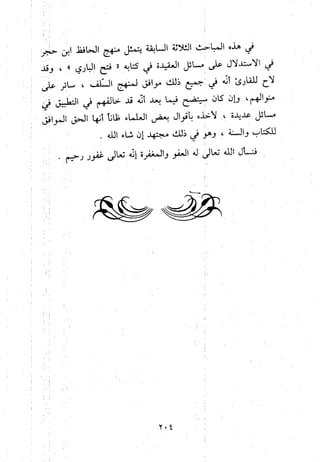 في هذه المباحث الثلاثة السابقة يتمثل منهج الحافظ ابن حجر
في الاستدلال على مسائل العقيدة في كتابه « فتح الباري » ، وقد
لاح للقارئ أنه في جميع ذلك موافق لمنهج السلف ، سائر على
منوالهم، وإن كان سيتضح فيما بعد أنه قد خالفهم في التطبيق في
مسائل عديدة ، لأخذه بأقوال بعض العلماء ظانًا أنها الحق الموافق
للكتاب والسنة ، وهو في ذلك مجتهد إن شاء الله .
فنسأل الله تعالى له العفو والمغفرة إنه تعالى غفور رحيم .
٢٠٤